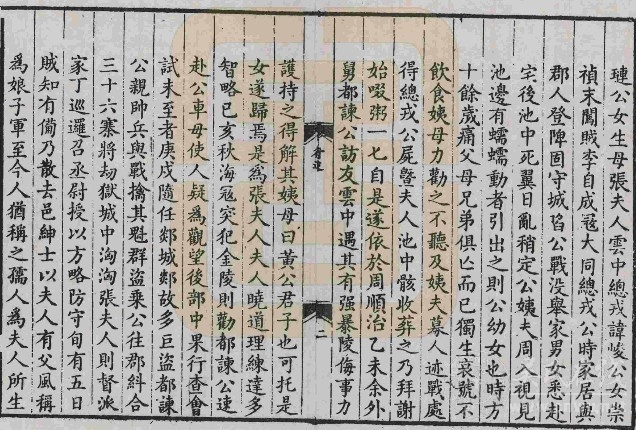 璉公女生母張夫人雲中總戎諱峻公女崇
禎末闖賊李自成冦大同總戎公時家居與
郡人登陴固守城陷公戰没舉家男女悉赴
宅後池中死翼日亂稍定公姨夫周入視見
池邊有蠕蠕動者引出之則公幼女也時方
十餘歲痛父母兄弟俱亾而已獨生哀號不
飲食姨母力勸之不聽及姨夫募人迹戰處
得總戎公屍暨夫人池中骸收葬之乃拜謝
始啜粥一七自是遂依於周順治乙未余外
舅都諫公訪友雲中遇其有强暴陵侮事力
二
護持之得解其姨母曰黃公君子也可托是
女遂歸焉是為張夫人夫人曉道理練達多
智略已亥秋海冦突犯金陵則勸都諫公速
赴公車毋使人疑為觀望後部中果行查會
試未至者庚戌隨任郯城郯故多巨盜都諫
公親帥兵與戰擒其魁群盜乘公往郡糾合
三十六寨將刼獄城中洶洶張夫人則督派
家丁巡邏召丞尉授以方略防守旬有五日
賊知有備乃散去邑紳士以夫人有父風稱
為娘子軍至今人猶稱之孺人為夫人所生